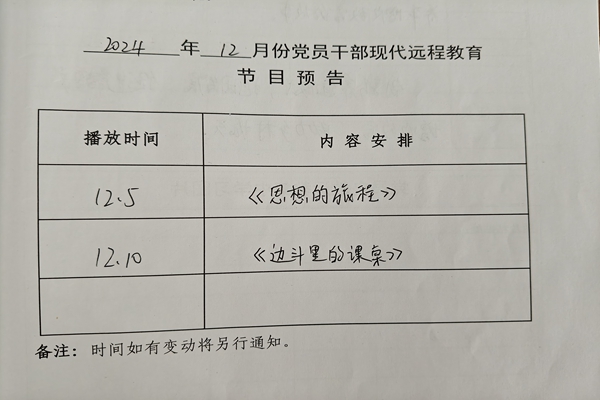 2024 年 12 月份党员干部现代远程教育
节目预告
播放时间 内容安排
12.5 《思想的旅程》
12.10 《边斗里的课桌》
备注：时间如有变动将另行通知。